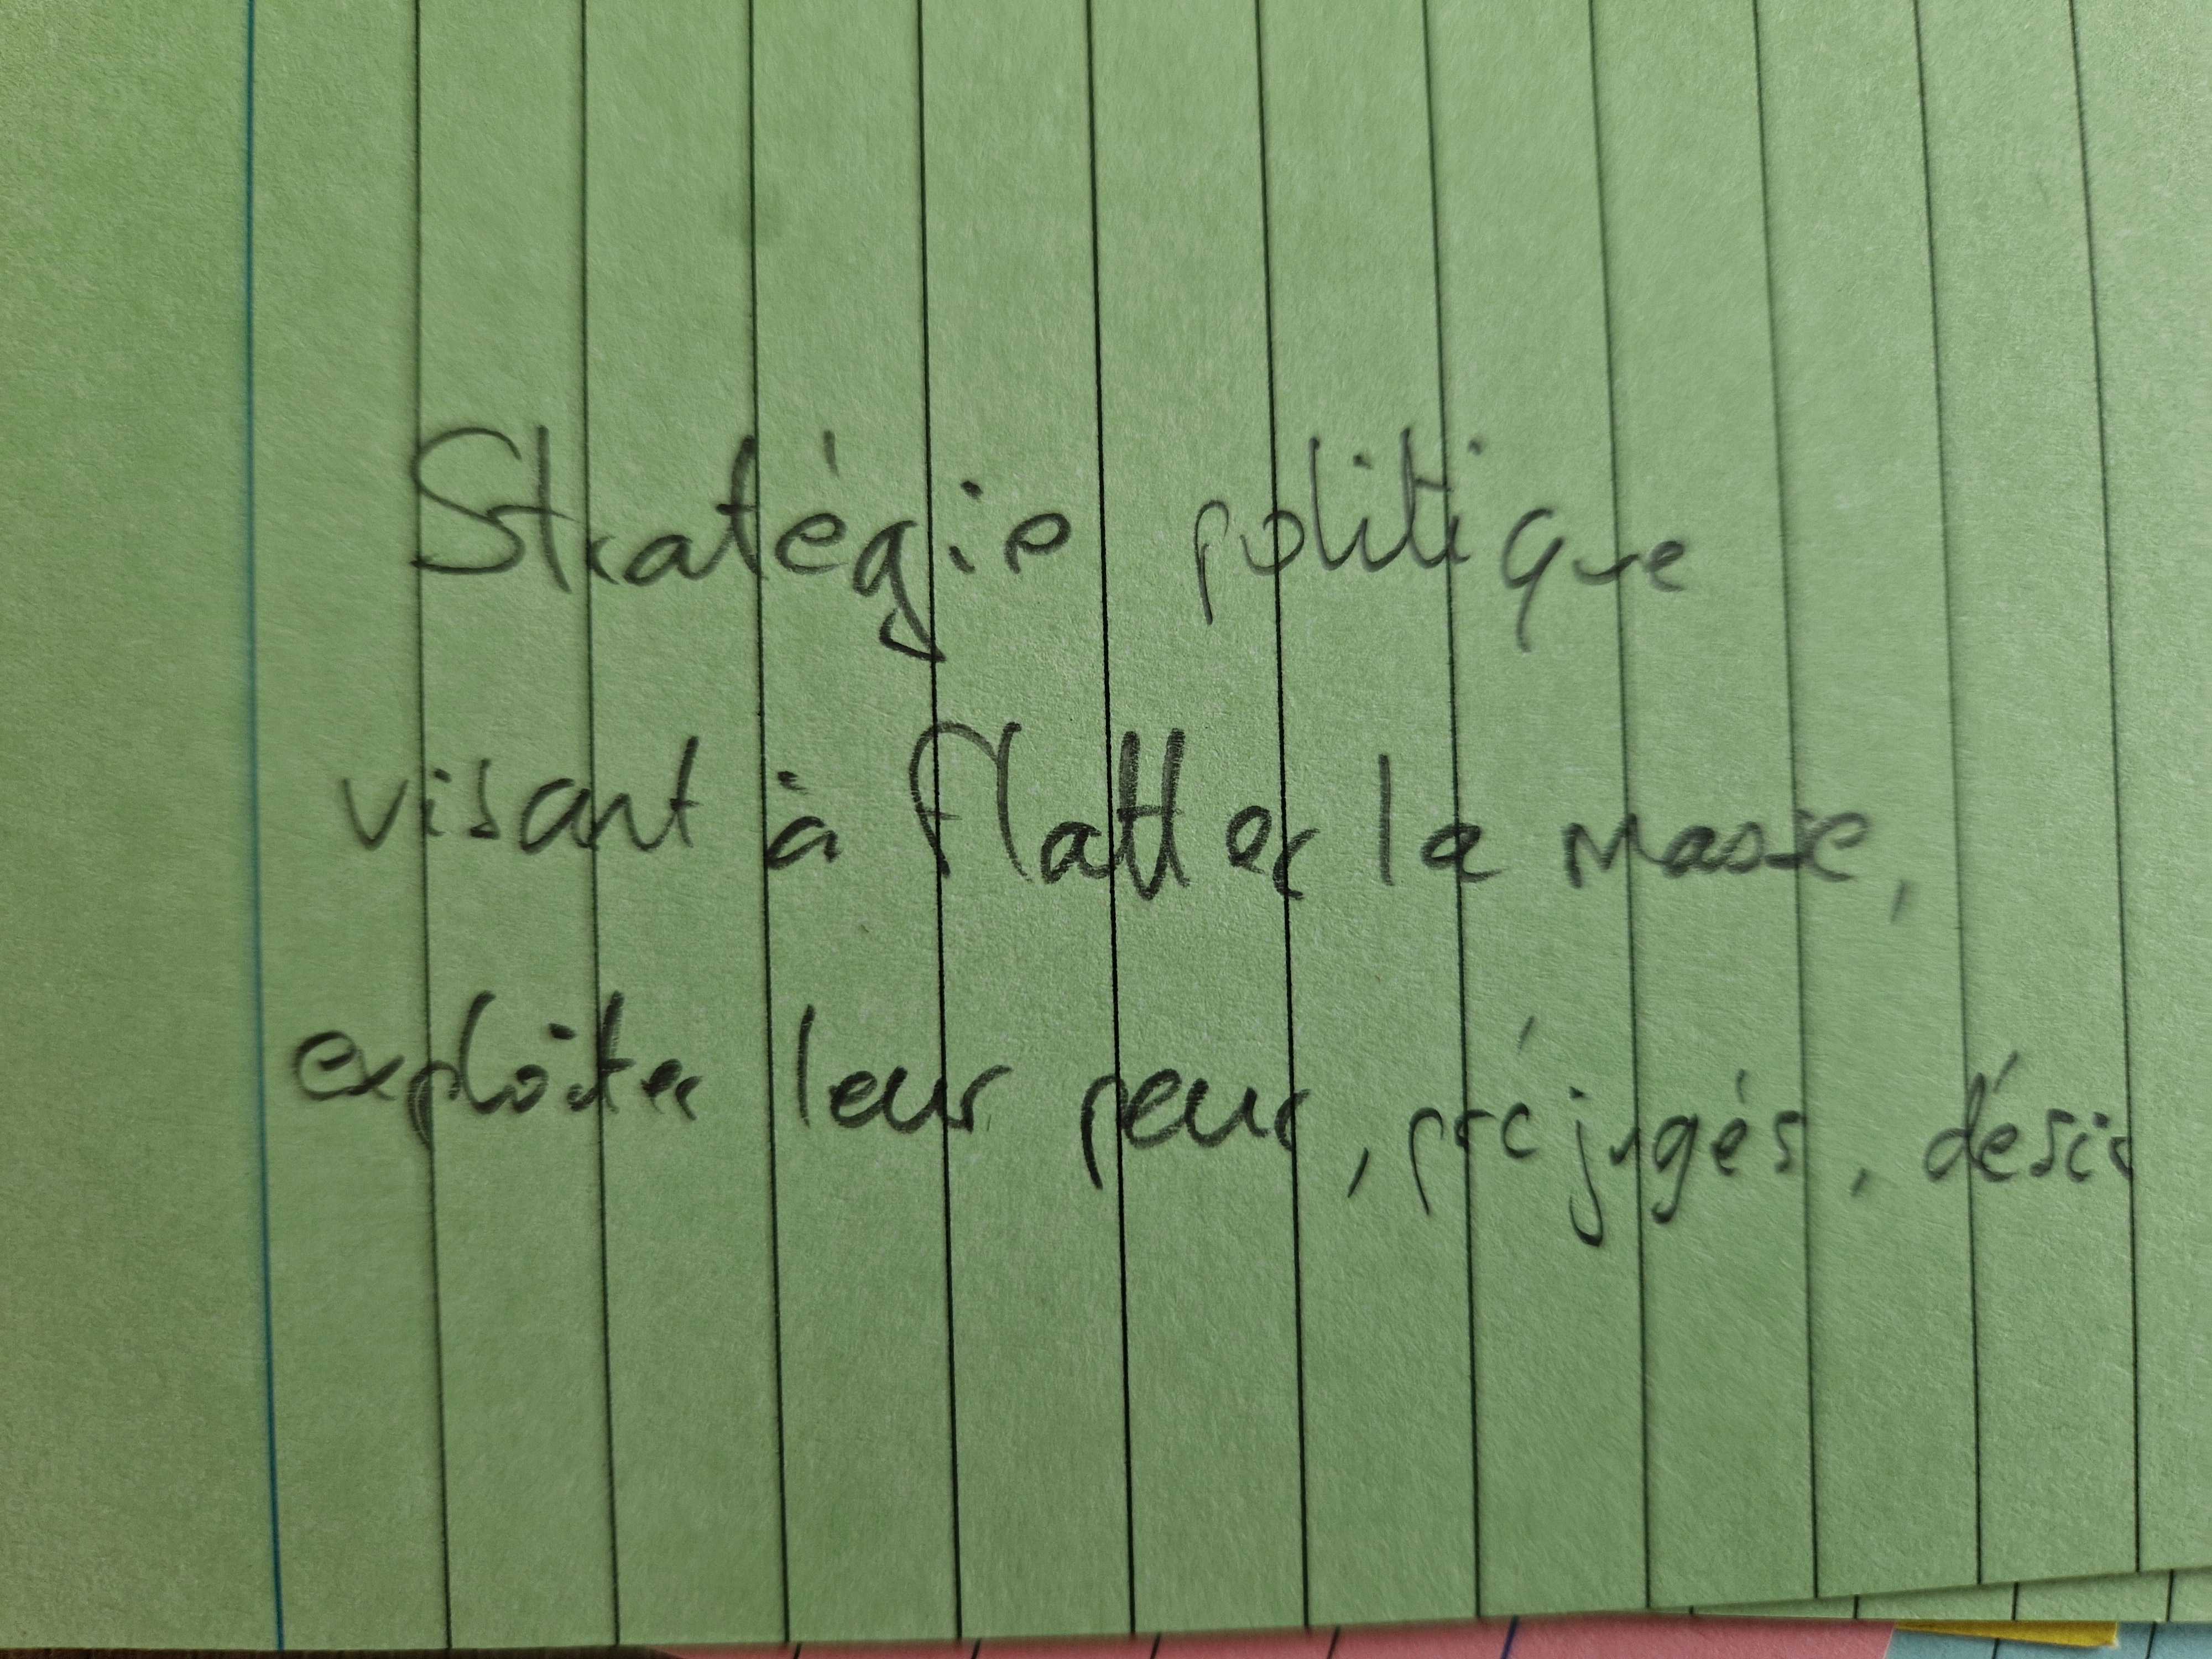 Stratégie politique
visant à flatter la masse,
exploiter leur peur, préjugés, désir